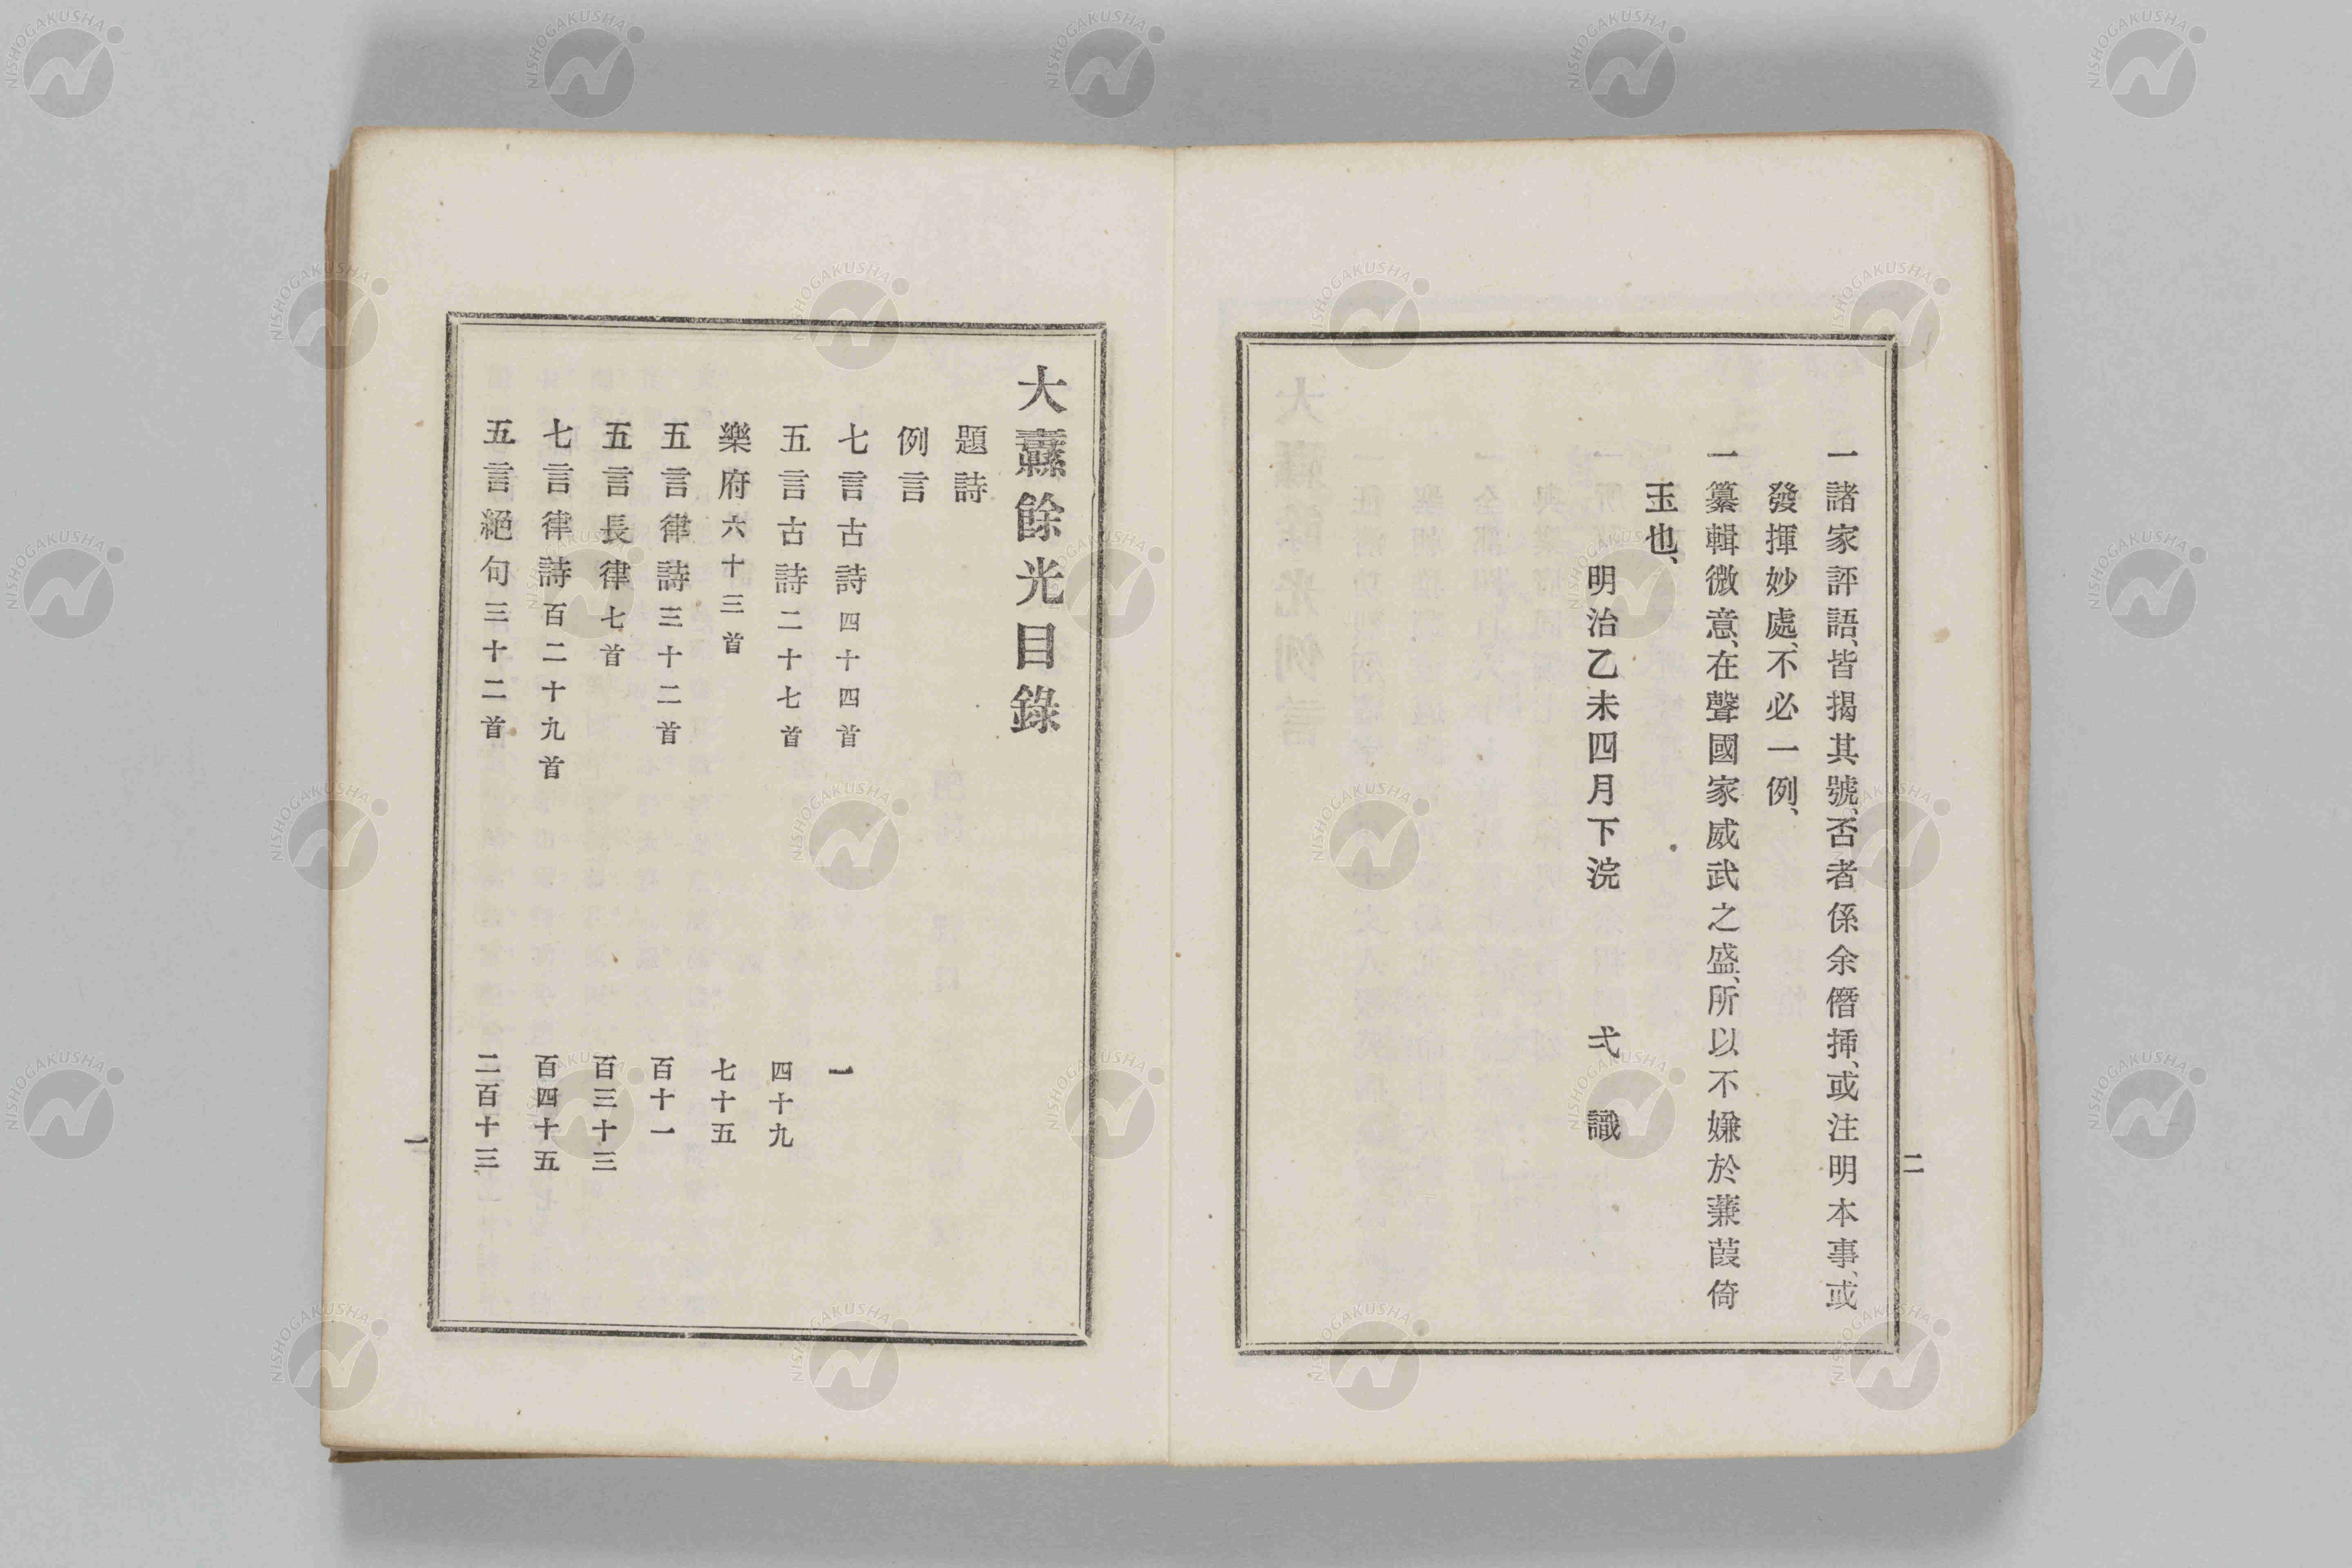 一諸家評語、皆揭其號、否者係余僭揷、或注明本事、或
發揮妙處、不必一例、
一纂輯微意、在聲國家威武之盛、所以不嫌於蒹葭倚
玉也、
明治乙未四月下浣 弌識
二
大纛餘光目錄
題詩
例言
七言古詩四十四首 一
五言古詩二十七首 四十九
樂府六十三首 七十五
五言律詩三十二首 百十一
五言長律七首 百三十三
七言律詩百二十九首 百四十五
五言絕句三十二首 二百十三
一
NISHOGAKUSHA